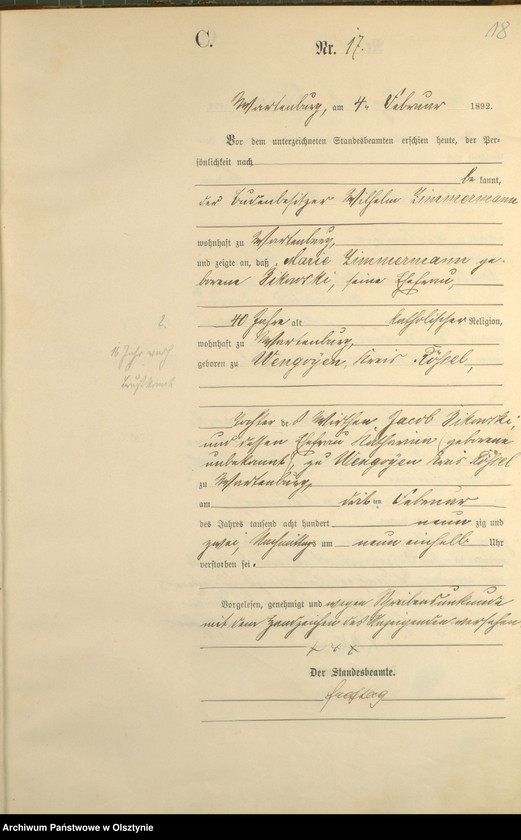 18
C.
Nr. 17.
Wartenburg, am 4ten Februar 1892.
Vor dem unterzeichneten Standesbeamten erschien heute, der Per-
sönlichkeit nach
be kannt,
der Budenbesitzer Wilhelm Zimmermann
wohnhaft zu Wartenburg,
und zeigte an, daß Marie Zimmermann ge-
borene Sikorski, seine Ehefrau,
40 Jahre alt katholischer Religion,
wohnhaft zu Wartenburg,
geboren zu Wengoyen Kreis Rößel,
2.
Tochter des Wirthen Jacob Sikorski,
und dessen Ehefrau Katharina (geborene
unbekannt) zu Wengoyen Kreis Rößel
zu Wartenburg,
am dritten Februar
des Jahres tausend acht hundert neun zig und
zwei, Nachmittags um neun einhalb Uhr
verstorben sei.
Vorgelesen, genehmigt und wegen Schreibensunkunde
mit dem Handzeichen des Anzeigenden versehen
x x x
Der Standesbeamte.
Freytag
Archiwum Państwowe w Olsztynie